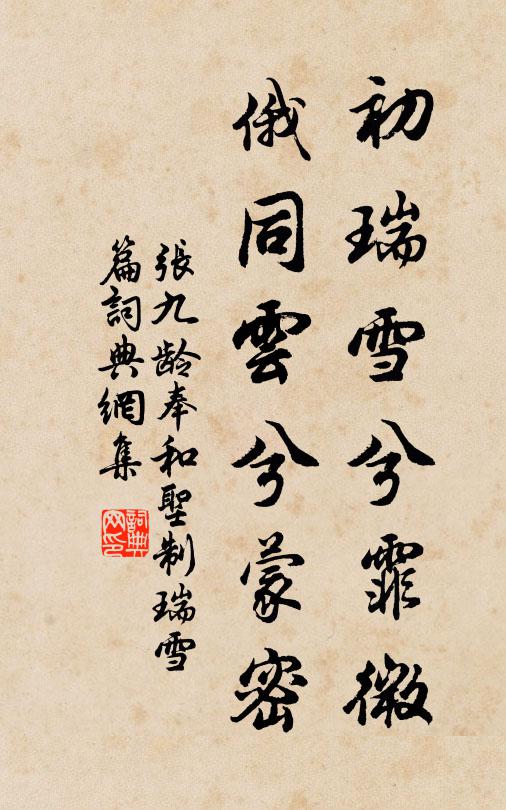 初瑞雪兮霏微
俄同雲兮蒙密
張九龄奉和聖制瑞雪
篇詞典網集
詞典
网印